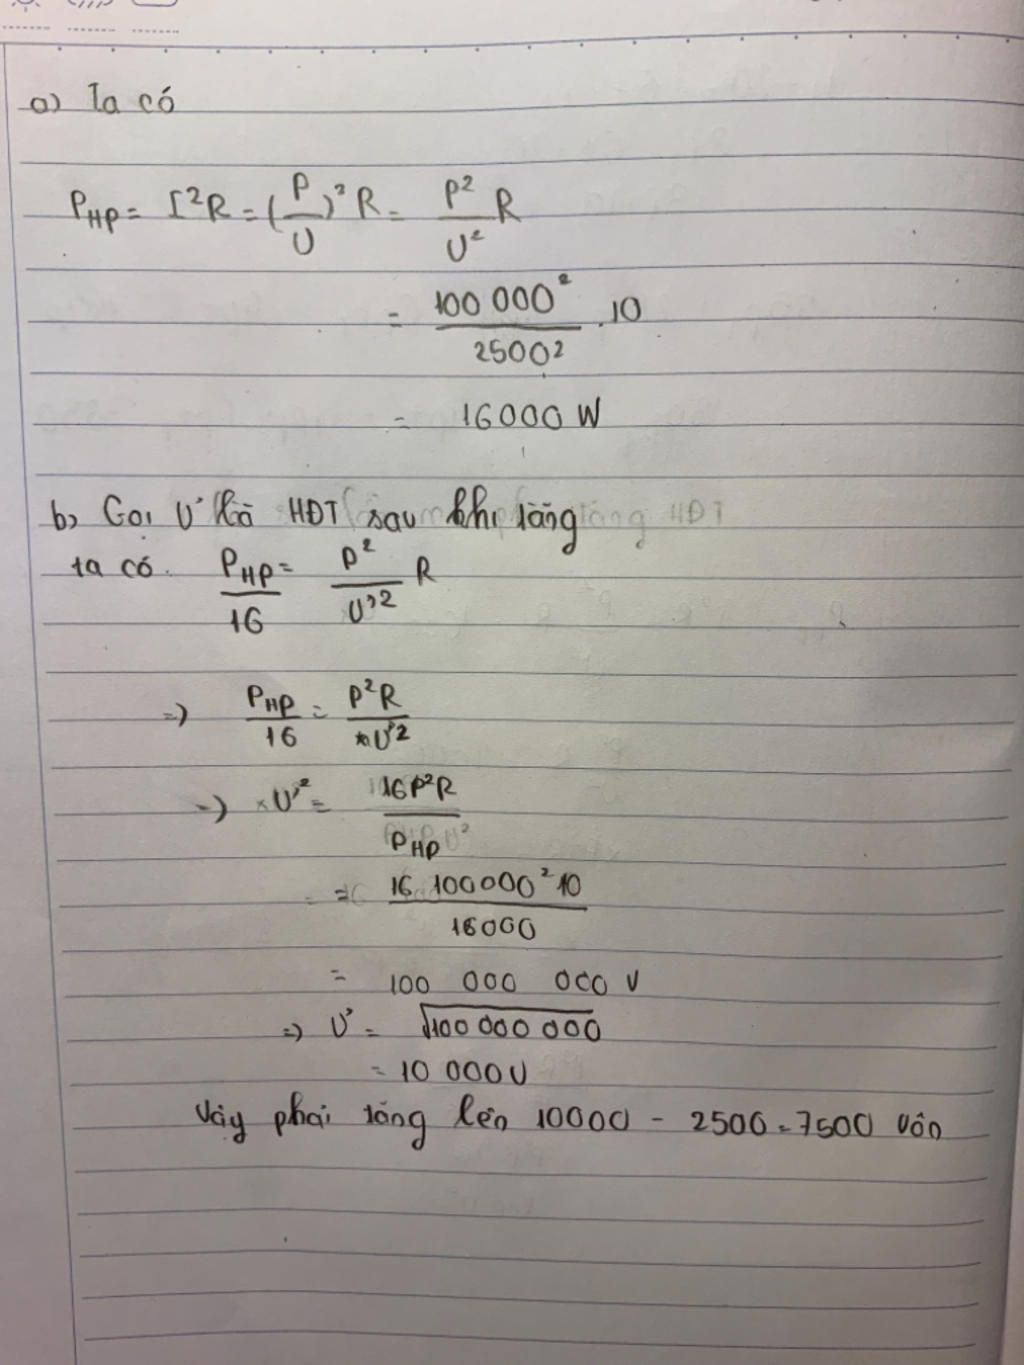 a) Ta có
P_HP = I²R = (P/U)² R = P²/U² R
= 100 000²/2500² .10
= 16000 W
b, Gọi U' là HĐT sau khi tăng
ta có. P_HP/16 = P²/U'² R
=) P_HP/16 = P²R/U'²
=) U'² = 16P²R/P_HP
= 16 100000² 10/16000
= 100 000 000 V
=) U' = √100 000 000
= 10 000 V
Vậy phải tăng lên 10000 - 2500 = 7500 vôn